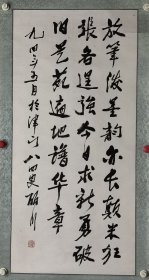 放筆泼墨韵亦长颠米狂
张各逞强今日求新勇破
旧艺苑遍地谱华章
九四年五月於津门八四叟